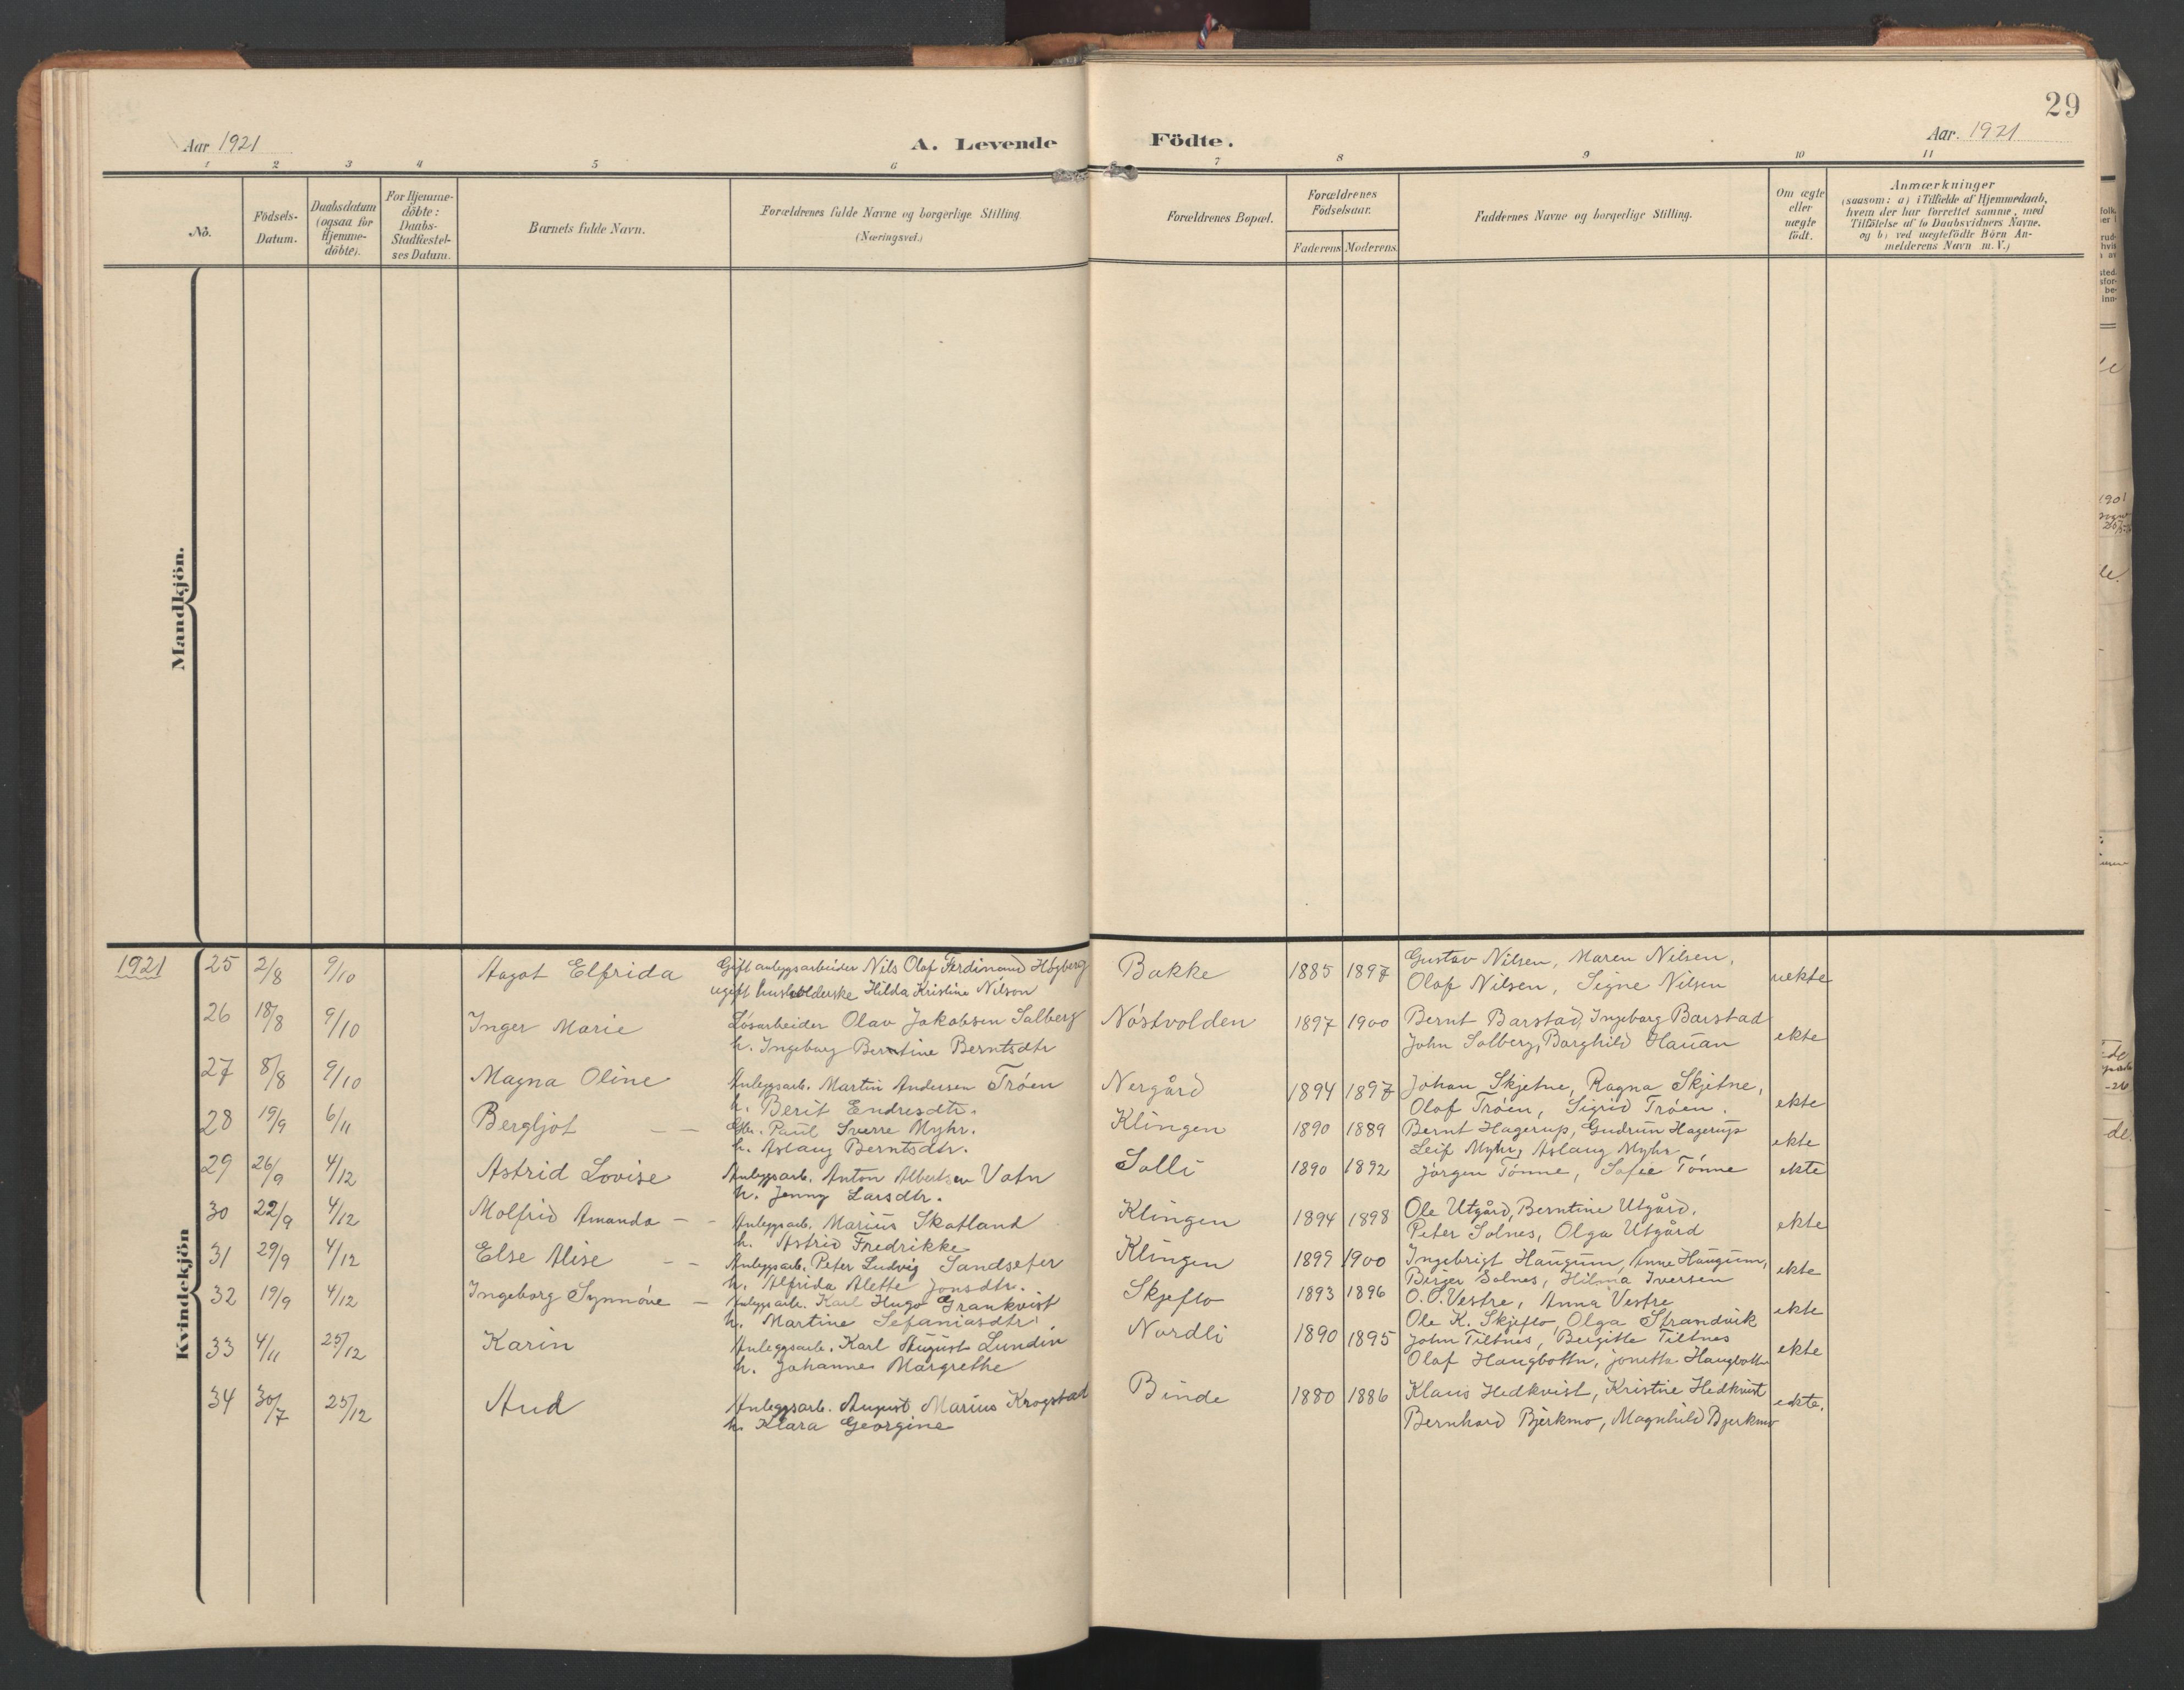 29
Aar 1921
A. Levende Födte.
Aar. 1921
1 2 3 4 5 6 7 8 9 10 11
No.
Födsels-
Datum.
Daabsdatum
(ogsaa for
Hjemme-
döbte).
For Hjemme-
döbte:
Daabs-
Stadfæstel-
ses Datum.
Barnets fulde Navn.
Forældrenes fulde Navne og borgerlige Stilling.
(Næringsvei.)
Forældrenes Bopæl.
Forældrenes
Födselsaar.
Faderens Moderens
Faddernes Navne og borgerlige Stilling.
Om ægte
eller
uægte
födt.
Anmærkninger
(saasom: a) i Tilfælde af Hjemmedaab,
hvem der har forrettet samme, med
Tilföielse af to Daabsvidners Navne.
og b) ved uægtefödte Börn An-
melderens Navn m. V.)
Mandkjön.
Kvindekjön
1921
25 2/8 9/10 Aagot Elfrida Gift anlegsarbeider Nils Olaf Ferdinand Högberg Bakke 1885 1897 Gustav Nilsen, Maren Nilsen, uekte
ugift husholderske Hilda Kristine Nilson Olaf Nilsen, Signe Nilsen
26 18/8 9/10 Inger Marie Løsarbeider Olav Jakobsen Salberg Nöstvolden 1897 1900 Bernt Barstad, Ingeborg Barstad ekte
h. Ingeborg Berntine Berntsdtr John Solberg, Borghild Hauan
27 8/8 9/10 Magna Oline Anlegsarb. Martin Andersen Tröen Nergård 1894 1897 Johan Skjetne, Ragna Skjetne, ekte
h. Berit Endresdtr. Olaf Tröen, Sigrid Tröen.
28 19/9 6/11 Bergljot — — Paul Sverre Myhr. Klingen 1890 1889 Bernt Hagerup, Gudrun Hagerup ekte
h. Aslaug Berntsdtr. Leif Myhr, Aslaug Myhr
29 26/9 4/12 Astrid Lovise Anlegsarb. Anton Albertsen Vatn Solli 1890 1892 Jörgen Tönne, Sofie Tönne ekte
h. Jenny Larsdtr.
30 22/9 4/12 Molfrid Amanda — - Anlegsarb. Marius Skatland Klingen 1894 1898 Ole Utgård, Berntine Utgård. ekte
h. Astrid Fredrikke Peter Solnes, Olga Utgård
31 29/9 4/12 Else Alise — - Anlegsarb. Peter Ludvig Sandseter Klingen 1899 1900 Ingebrigt Haugum, Anne Haugum, ekte
h. Alfrida Alette Jonsdtr. Birger Solnes, Hilma Iversen
32 19/9 4/12 Ingeborg Synnöve — Anlegsarb. Karl Hugo Grankvist Skjeflo 1893 1896 O. O. Vestre, Anna Vestre ekte
h. Martine Sefaniasdtr. Ole K. Skjeflo, Olga Strandvik
33 4/11 25/12 Karin Anleggsarb. Karl August Lundin Nordli 1890 1895 John Tiltnes, Bergitte Tiltnes ekte
h. Johanne Margrethe Olaf Haugbottn, Jonetta Haugbottn
34 30/7 25/12 Aud Anleggsarb. August Marius Krogstad Binde 1880 1886 Klaus Hedkvist, Kristine Hedkvist ekte.
h. Klara Georgine Bernhard Bjerkmo, Magnhild Bjerkmo